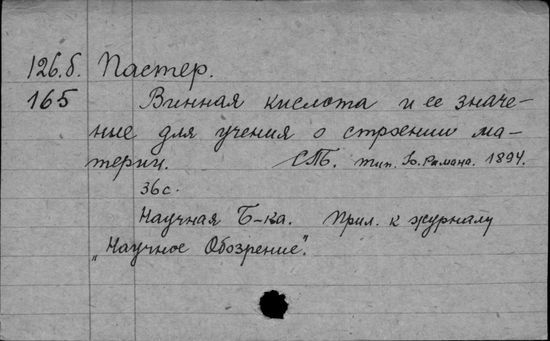 126.б. Пастер.
165 Винная кислота и ее значе-
ние для учения о строении ма-
терии. СПб. тип. Ю. Римана. 1894.
36 с.
Научная Б-ка. Прил. к журналу
„Научное Обозрение".